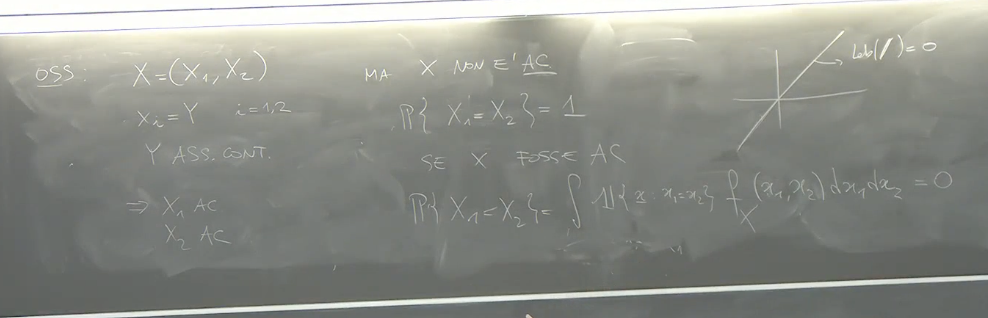 OSS: X = (X₁, X₂)
X_i = Y i = 1,2
Y ASS. CONT.
⇒ X₁ AC
X₂ AC
MA X NON E' AC
ℙ{ X₁ = X₂ } = 1
SE X FOSSE AC
ℙ{ X₁ = X₂ } = ∫ 𝟙{ x : x₁ = x₂ } f_X (x₁, x₂) dx₁ dx₂ = 0
Leb(/) = 0